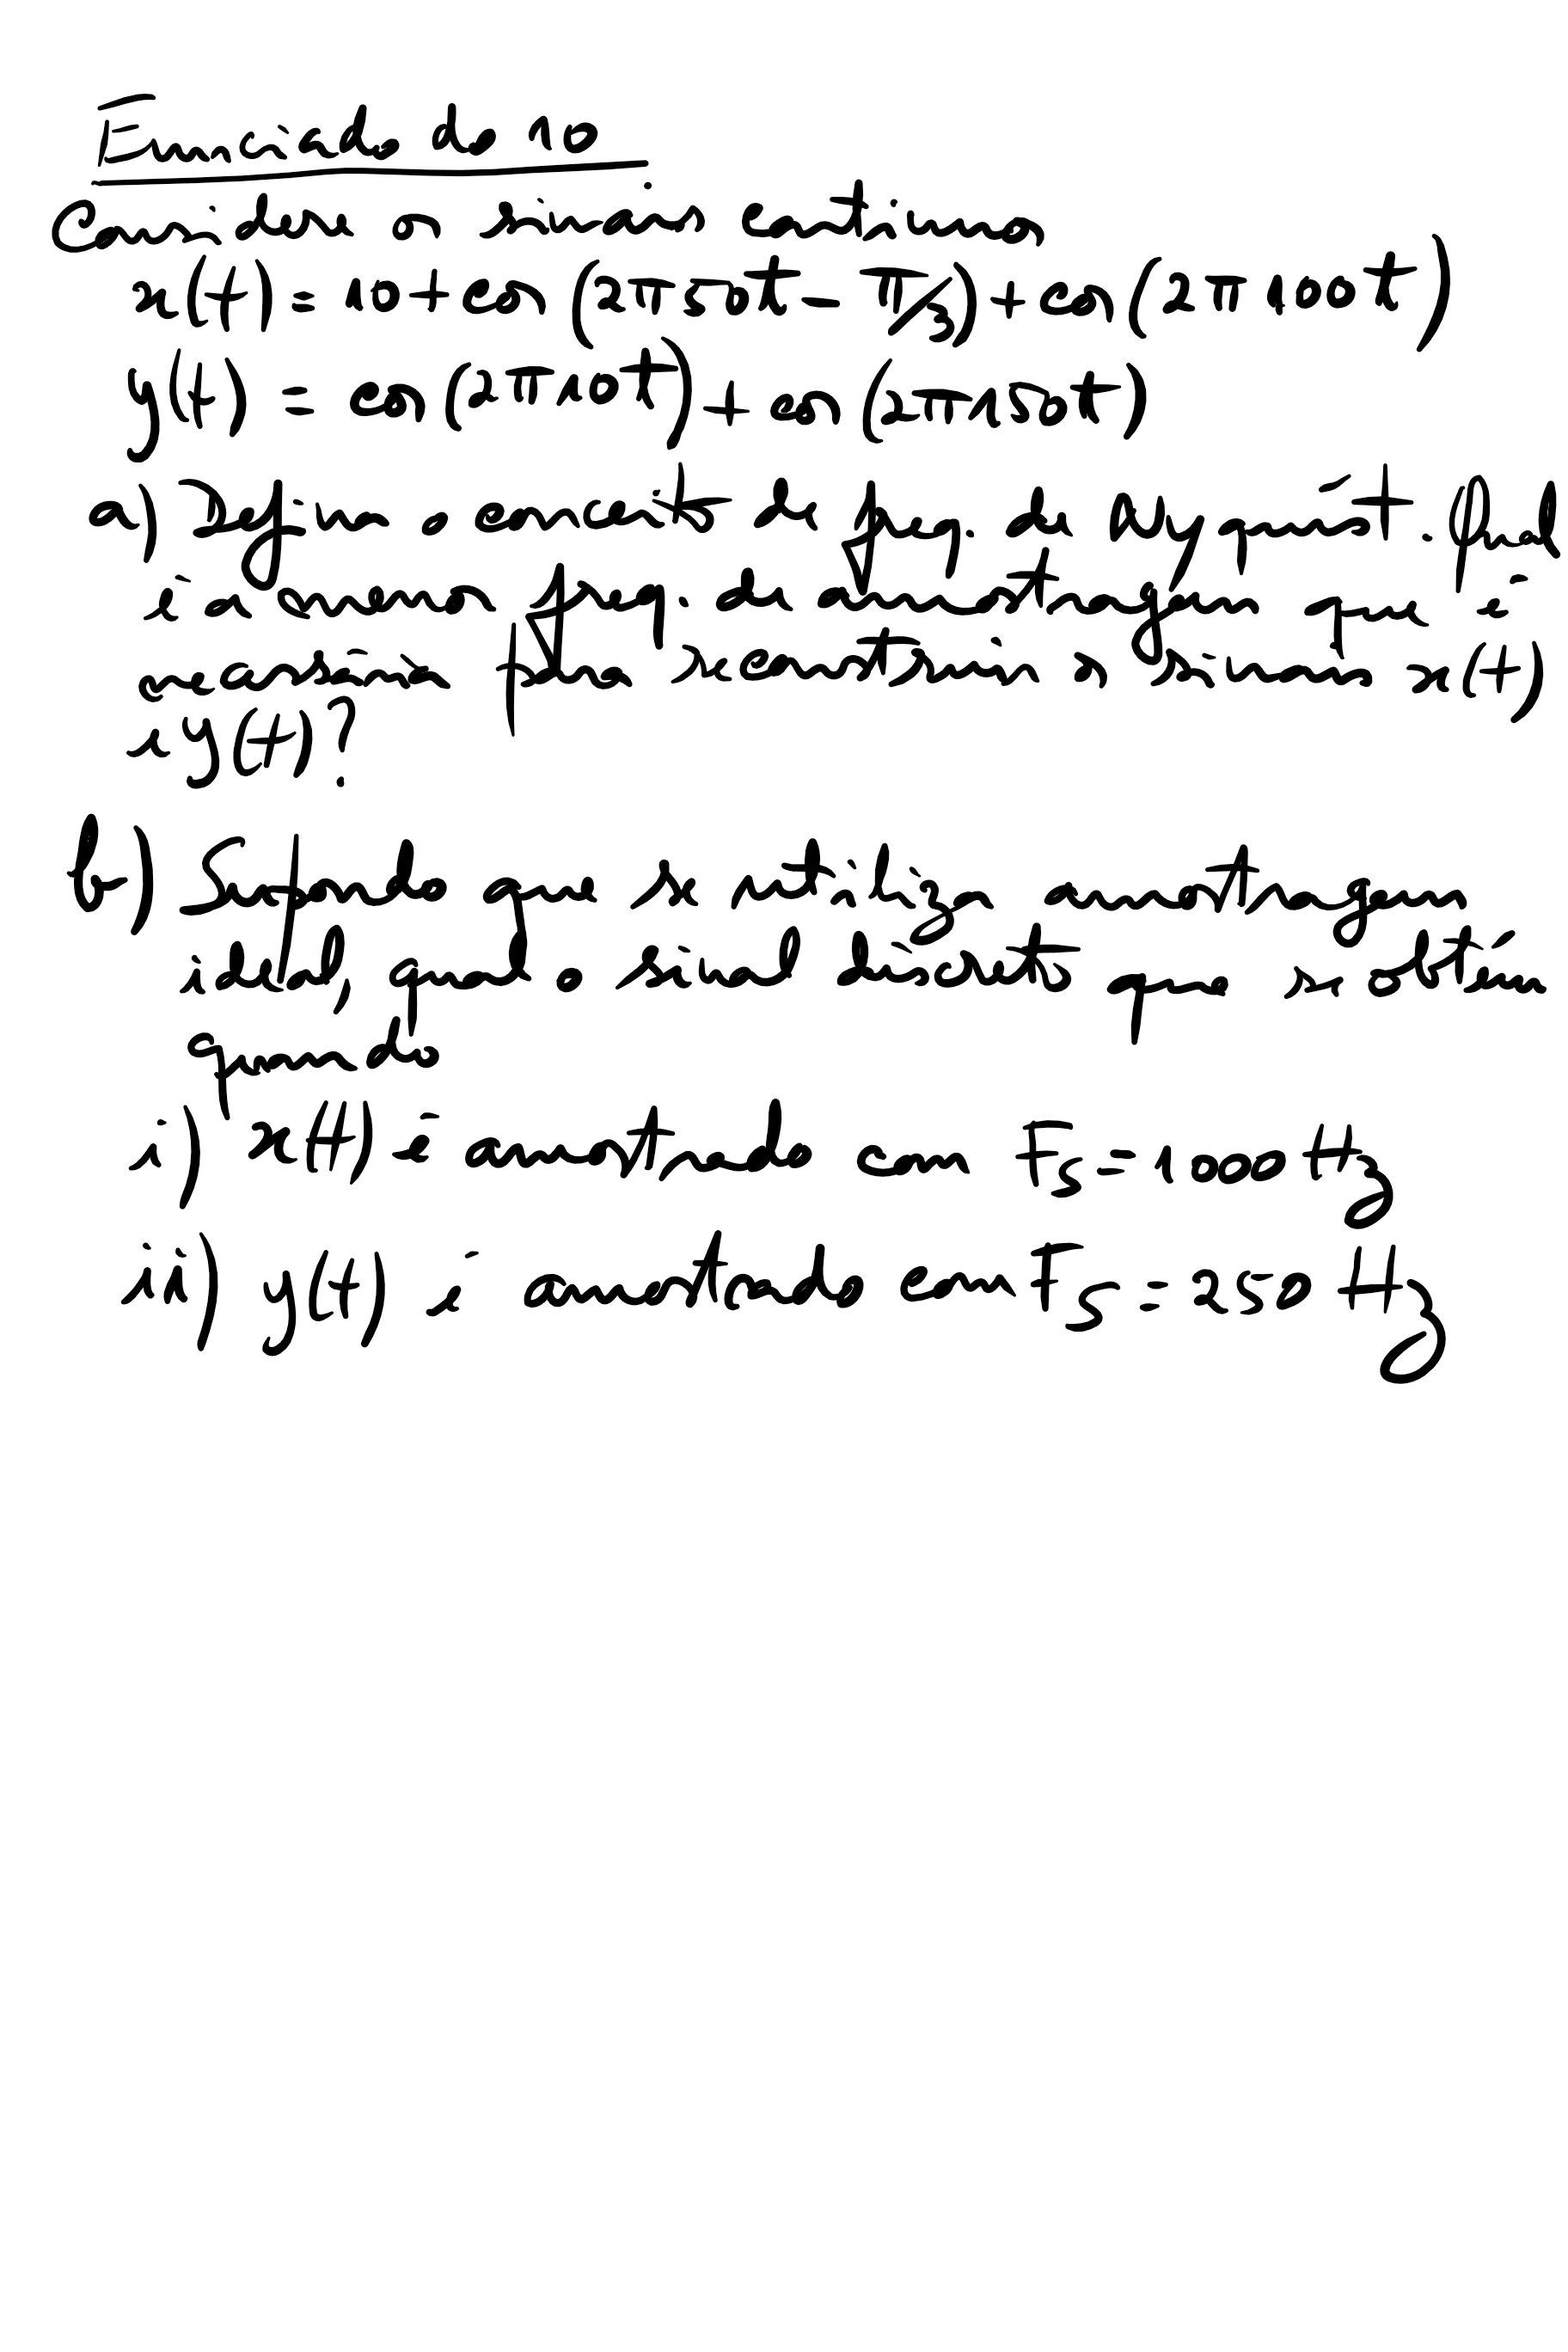 Enunciado do 10
Considere os sinais contínuos
x(t) = 10 + cos(2π50t - π/3) + cos(2π100t)
y(t) = cos(2π10t) + cos(2π150t)
a) Defina o conceito de freq. de Nyquist. Qual
é a menor freq. de amostragem que é
necessária para se construir os sinais x(t)
e y(t)?
b) Supondo que se utiliza amostragem
ideal, qual o sinal discreto que se obtém
quando
i) x(t) é amostrado com Fs = 1000 Hz
ii) y(t) é amostrado com Fs = 250 Hz